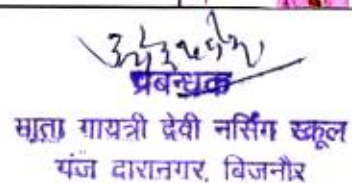 प्रबन्धक
माता गायत्री देवी नर्सिंग स्कूल
गंज दारानगर, बिजनौर